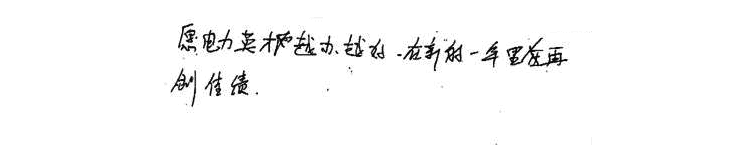 愿电力英才越办越好.在新的一年里在再
创佳绩.